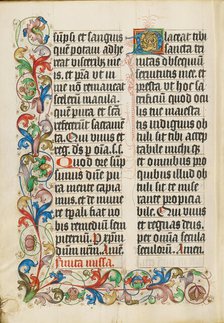 sūpsi et sanguis
quē potaui adhe
rat viscerib; me
is et pta vt in
me nō remaneat
scelerū macula.
quē pura et scā
refecerūt sacramē
ta. Qui viuis et
reg. ds p oīa. s. s.
Quod ore sūp
simus dn̄e pu
ra mente capia
mus. et de mune
re tp̄ali fiat no
bis remediū sem
piternū. P xp̄m
dn̄m nr̄m. Amē.
Finita missa.
Placeat tibi
sancta tri
nitas obsequiū
seruitutis mee. et
presta vt hoc sa
crificiū qd oculis
tue maiesta
tis indignus ob
tuli tibi sit ac
ceptabile. michiq;
et omnibus pro
quibus illud ob
tuli sit te mise
rante propicia
bile. Qui viuis
et regnas deus.
per om̄ia secula
seculorū. Amen.